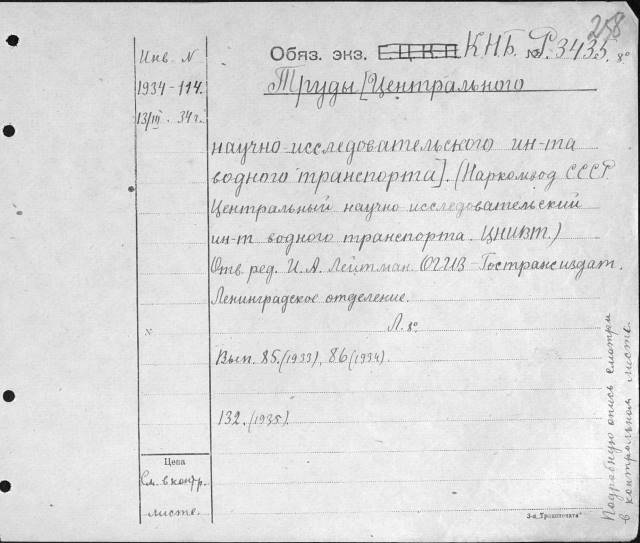 278
Обяз. экз. Е.Ц.К.П. КНБ. № Р.3435. 8°
Инв. N
1934-114.
13/III. 34 г.
Труды [Центрального
научно-исследовательского ин-та
водного транспорта]. (Наркомвод СССР.
Центральный научно-исследовательский
ин-т водного транспорта. ЦНИВТ.)
Отв. ред. И. А. Лейтман. ОГИЗ-Гострансиздат.
Ленинградское отделение.
Л. 8°
N
Вып. 85.(1933), 86(1934).
132.(1935).
Цена
См. в контр.
листе.
Подробную опись смотри
в контрольном листе.
3-я „Транспечать"